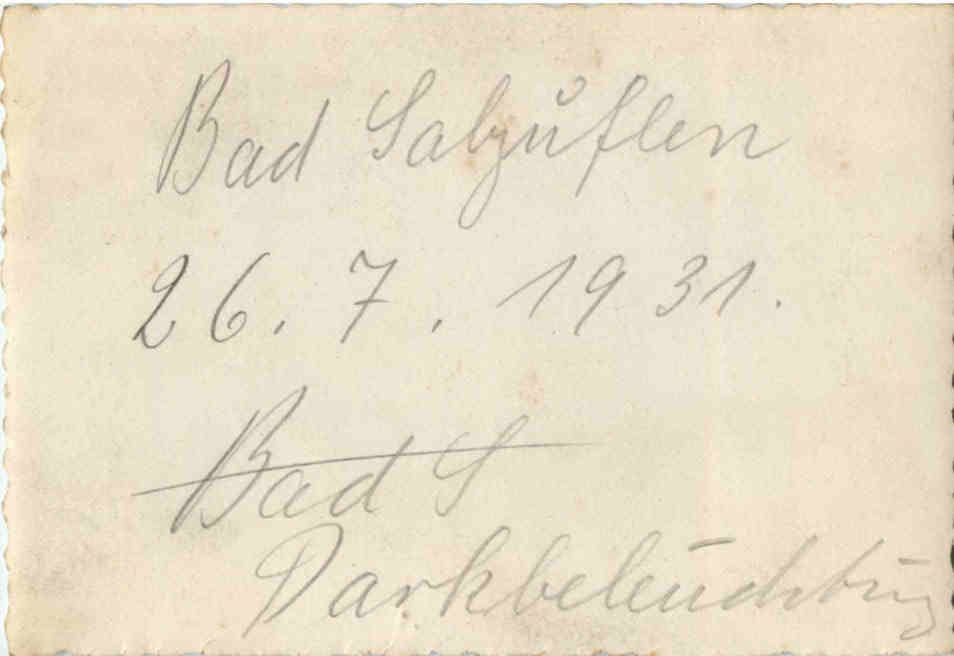 Bad Salzuflen
26. 7. 1931.
Bad S
Parkbeleuchtung